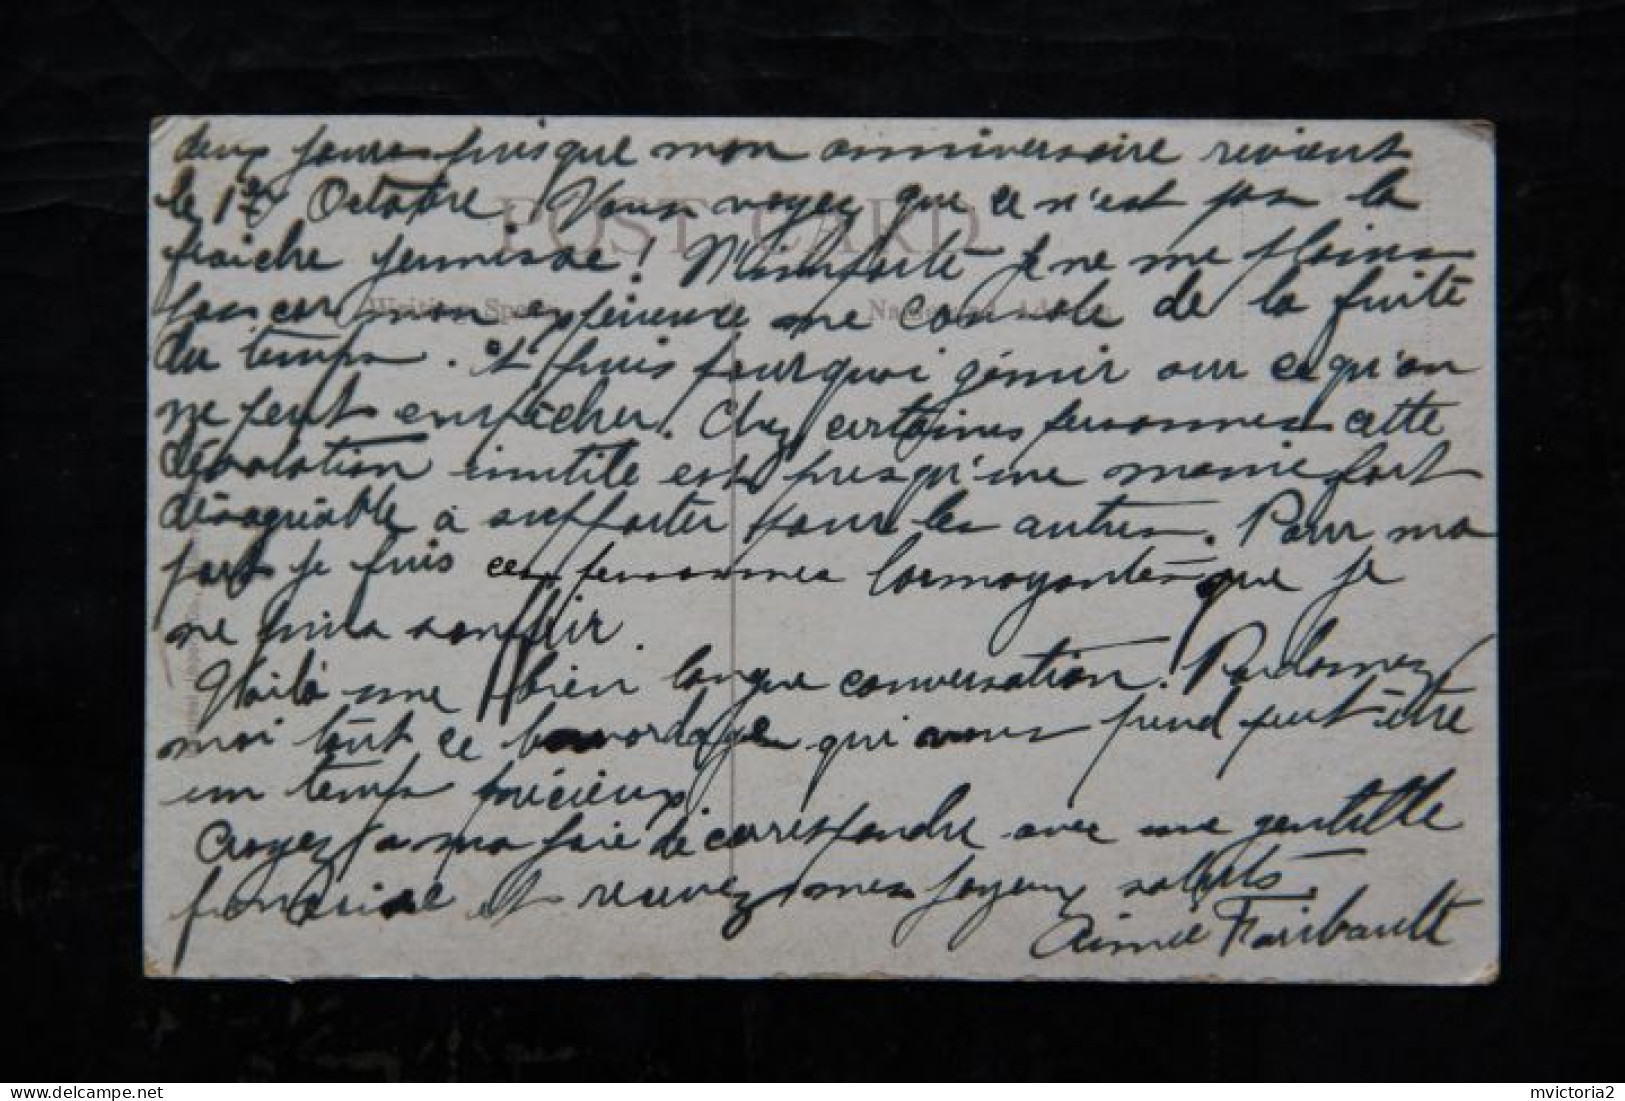 deux jours puisque mon anniversaire revient
le 1er Octobre. Vous voyez que ce n'est pas la
POST CARD
fraîche jeunesse! N'importe je ne me plains
Writing Space
pas car mon expérience me console de la fuite
du temps. Et puis pourquoi gémir sur ce qu'on
ne peut empêcher. Chez certaines personnes cette
désolation inutile est presqu'une manie fort
désagréable à supporter pour les autres. Pour ma
part je fuis ces personnes larmoyantes que je
ne puis souffrir.
Voilà une bien longue conversation. Pardonnez
moi tout ce bavardage qui vous prend peut-être
un temps précieux.
Croyez à ma joie de correspondre avec une gentille
française et recevez mes joyeux saluts.
Aimée Faribault
mvictoria2